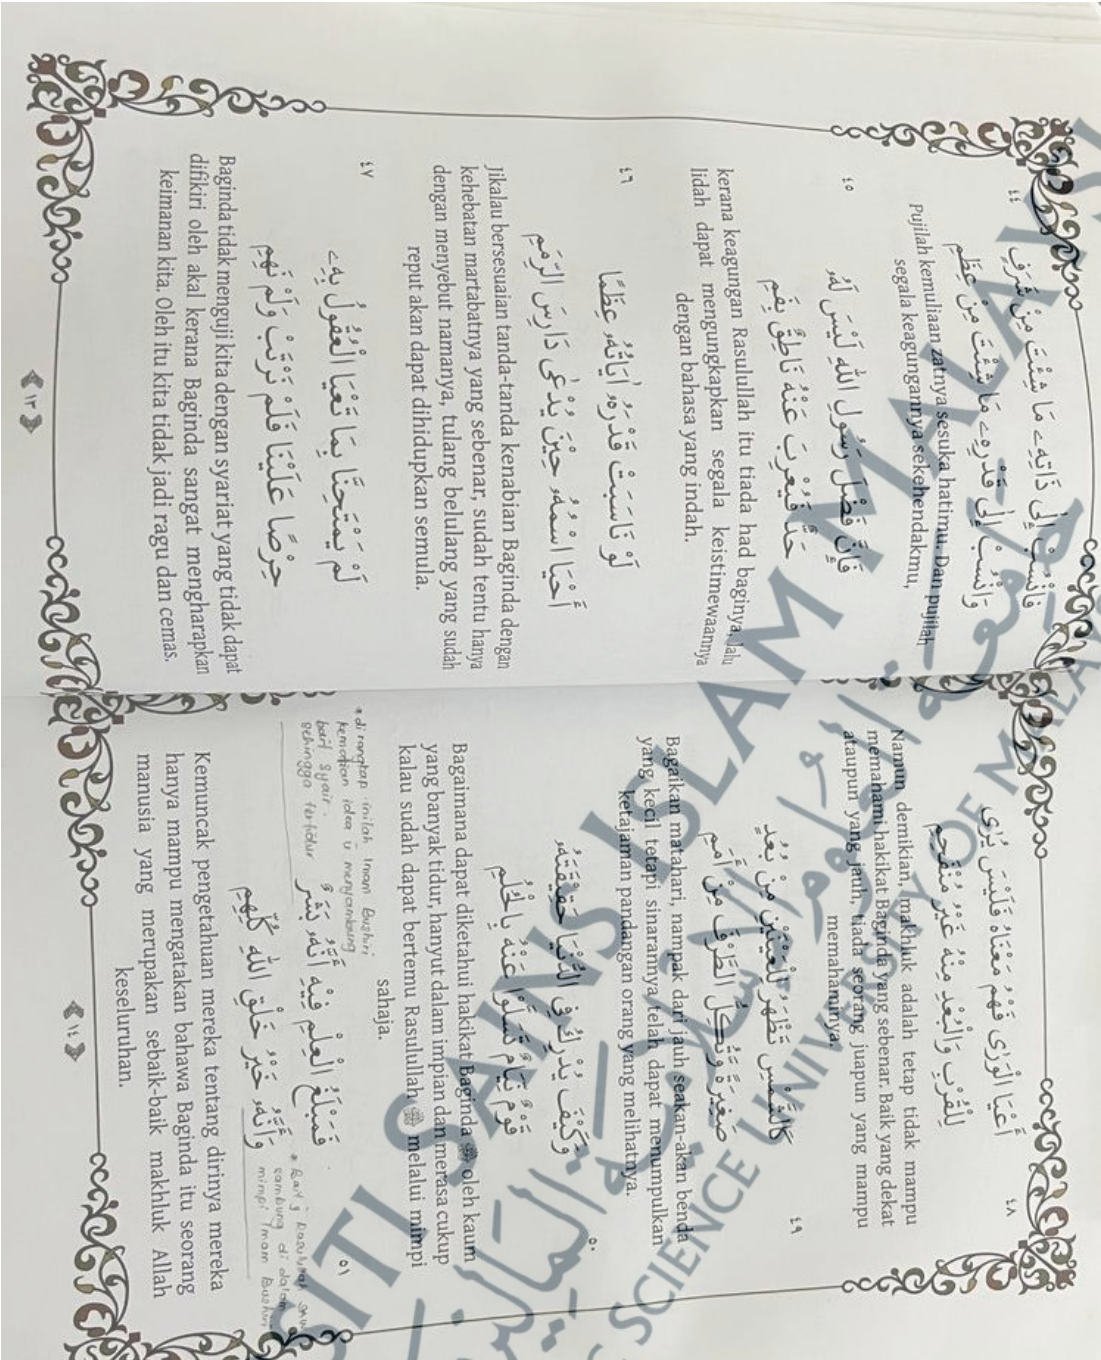 ٤٤
فَانْسُبْ إِلَى ذَاتِهِۦ مَا شِئْتَ مِنْ شَرَفٍ
وَانْسُبْ إِلَى قَدْرِهِۦ مَا شِئْتَ مِنْ عِظَمِ
Pujilah kemuliaan zatnya sesuka hatimu. Dan pujilah
segala keagungannya sekehendakmu,
٤٥
فَإِنَّ فَضْلَ رَسُولِ اللهِ لَيْسَ لَهُۥ
حَدٌّ فَيُعْرِبَ عَنْهُ نَاطِقٌ بِفَمِ
kerana keagungan Rasulullah itu tiada had baginya, lalu
lidah dapat mengungkapkan segala keistimewaannya
dengan bahasa yang indah.
٤٦
لَوْ نَاسَبَتْ قَدْرَهُۥ آيَاتُهُۥ عِظَمًا
أَحْيَا اسْمُهُۥ حِيْنَ يُدْعَى دَارِسَ الرِّمَمِ
Jikalau bersesuaian tanda-tanda kenabian Baginda dengan
kehebatan martabatnya yang sebenar, sudah tentu hanya
dengan menyebut namanya, tulang belulang yang sudah
reput akan dapat dihidupkan semula.
٤٧
لَمْ يَمْتَحِنَّا بِمَا تَعْيَا الْعُقُولُ بِهِۦ
حِرْصًا عَلَيْنَا فَلَمْ نَرْتَبْ وَلَمْ نَهِمِ
Baginda tidak menguji kita dengan syariat yang tidak dapat
difikiri oleh akal kerana Baginda sangat mengharapkan
keimanan kita. Oleh itu kita tidak jadi ragu dan cemas.
١٣
٤٨
أَعْيَا الْوَرَى فَهْمُ مَعْنَاهُ فَلَيْسَ يُرَى
لِلْقُرْبِ وَالْبُعْدِ مِنْهُ غَيْرُ مُنْفَحِمِ
Namun demikian, makhluk adalah tetap tidak mampu
memahami hakikat Baginda yang sebenar. Baik yang dekat
ataupun yang jauh, tiada seorang juapun yang mampu
memahaminya.
٤٩
كَالشَّمْسِ تَظْهَرُ لِلْعَيْنَيْنِ مِنْ بُعُدٍ
صَغِيرَةً وَتُكِلُّ الطَّرْفَ مِنْ أَمَمِ
Bagaikan matahari, nampak dari jauh seakan-akan benda
yang kecil tetapi sinarannya telah dapat menumpulkan
ketajaman pandangan orang yang melihatnya.
٥٠
وَكَيْفَ يُدْرِكُ فِي الدُّنْيَا حَقِيْقَتَهُۥ
قَوْمٌ نِيَامٌ تَسَلَّوْا عَنْهُ بِالْحُلُمِ
Bagaimana dapat diketahui hakikat Baginda ﷺ oleh kaum
yang banyak tidur, hanyut dalam impian dan merasa cukup
kalau sudah dapat bertemu Rasulullah ﷺ melalui mimpi
sahaja.
* di rangkap inilah Imam Bushiri
kematian idea u menyambung
bait syair
sehingga tertidur
٥١
فَمَبْلَغُ الْعِلْمِ فِيْهِ أَنَّهُۥ بَشَرٌ
وَأَنَّهُۥ خَيْرُ خَلْقِ اللهِ كُلِّهِمِ
* Bait y Rasulullah saw
sambung di dalam
mimpi Imam Bushiri
Kemuncak pengetahuan mereka tentang dirinya mereka
hanya mampu mengatakan bahawa Baginda itu seorang
manusia yang merupakan sebaik-baik makhluk Allah
keseluruhan.
١٤
SITI SAINS ISLAM MALAYSI
جامعة العلوم الإسلامية الماليزية
SCIENCE UNIVERSITY OF MALA